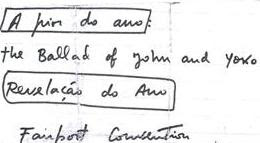 A pior do ano:
the Ballad of John and Yoko
Revelação do Ano
Fairport Convention